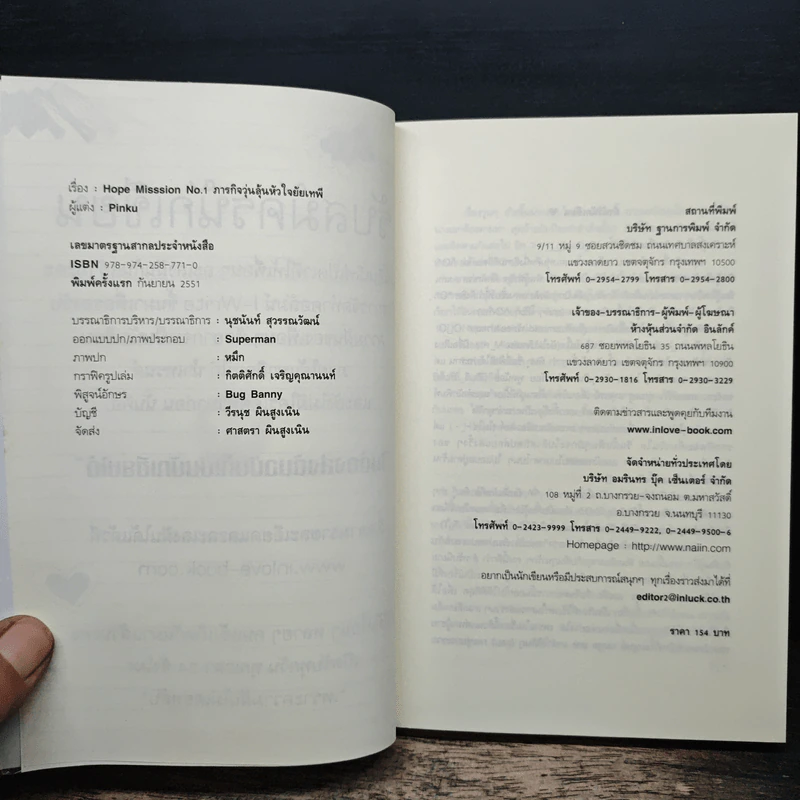 เรื่อง : Hope Misssion No.1 ภารกิจวุ่นลุ้นหัวใจยัยเทพี
ผู้แต่ง : Pinku
เลขมาตรฐานสากลประจำหนังสือ
ISBN 978-974-258-771-0
พิมพ์ครั้งแรก กันยายน 2551
บรรณาธิการบริหาร/บรรณาธิการ : นุชนันท์ สุวรรณวัฒน์
ออกแบบปก/ภาพประกอบ : Superman
ภาพปก : หมึก
กราฟิครูปเล่ม : กิตติศักดิ์ เจริญคุณานนท์
พิสูจน์อักษร : Bug Banny
บัญชี : วีรนุช ผินสูงเนิน
จัดส่ง : ศาสตรา ผินสูงเนิน
สถานที่พิมพ์
บริษัท ฐานการพิมพ์ จำกัด
9/11 หมู่ 9 ซอยสวนชิดชม ถนนเทศบาลสงเคราะห์
แขวงลาดยาว เขตจตุจักร กรุงเทพฯ 10500
โทรศัพท์ 0-2954-2799 โทรสาร 0-2954-2800
เจ้าของ-บรรณาธิการ-ผู้พิมพ์-ผู้โฆษณา
ห้างหุ้นส่วนจำกัด อินลักค์
687 ซอยพหลโยธิน 35 ถนนพหลโยธิน
แขวงลาดยาว เขตจตุจักร กรุงเทพฯ 10900
โทรศัพท์ 0-2930-1816 โทรสาร 0-2930-3229
ติดตามข่าวสารและพูดคุยกับทีมงาน
www.inlove-book.com
จัดจำหน่ายทั่วประเทศโดย
บริษัท อมรินทร บุ๊ค เซ็นเตอร์ จำกัด
108 หมู่ที่ 2 ถ.บางกรวย-จงถนอม ต.มหาสวัสดิ์
อ.บางกรวย จ.นนทบุรี 11130
โทรศัพท์ 0-2423-9999 โทรสาร 0-2449-9222, 0-2449-9500-6
Homepage : http://www.naiin.com
อยากเป็นนักเขียนหรือมีประสบการณ์สนุกๆ ทุกเรื่องราวส่งมาได้ที่
editor2@inluck.co.th
ราคา 154 บาท